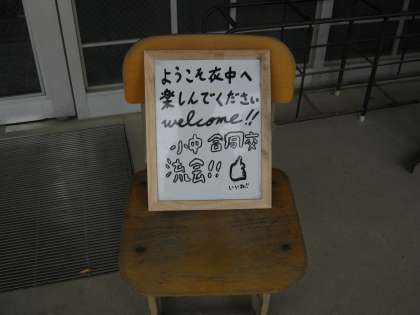 ようこそ衣中へ
楽しんでください
welcome!!
小中 合同交
流会!!
いいねぇ